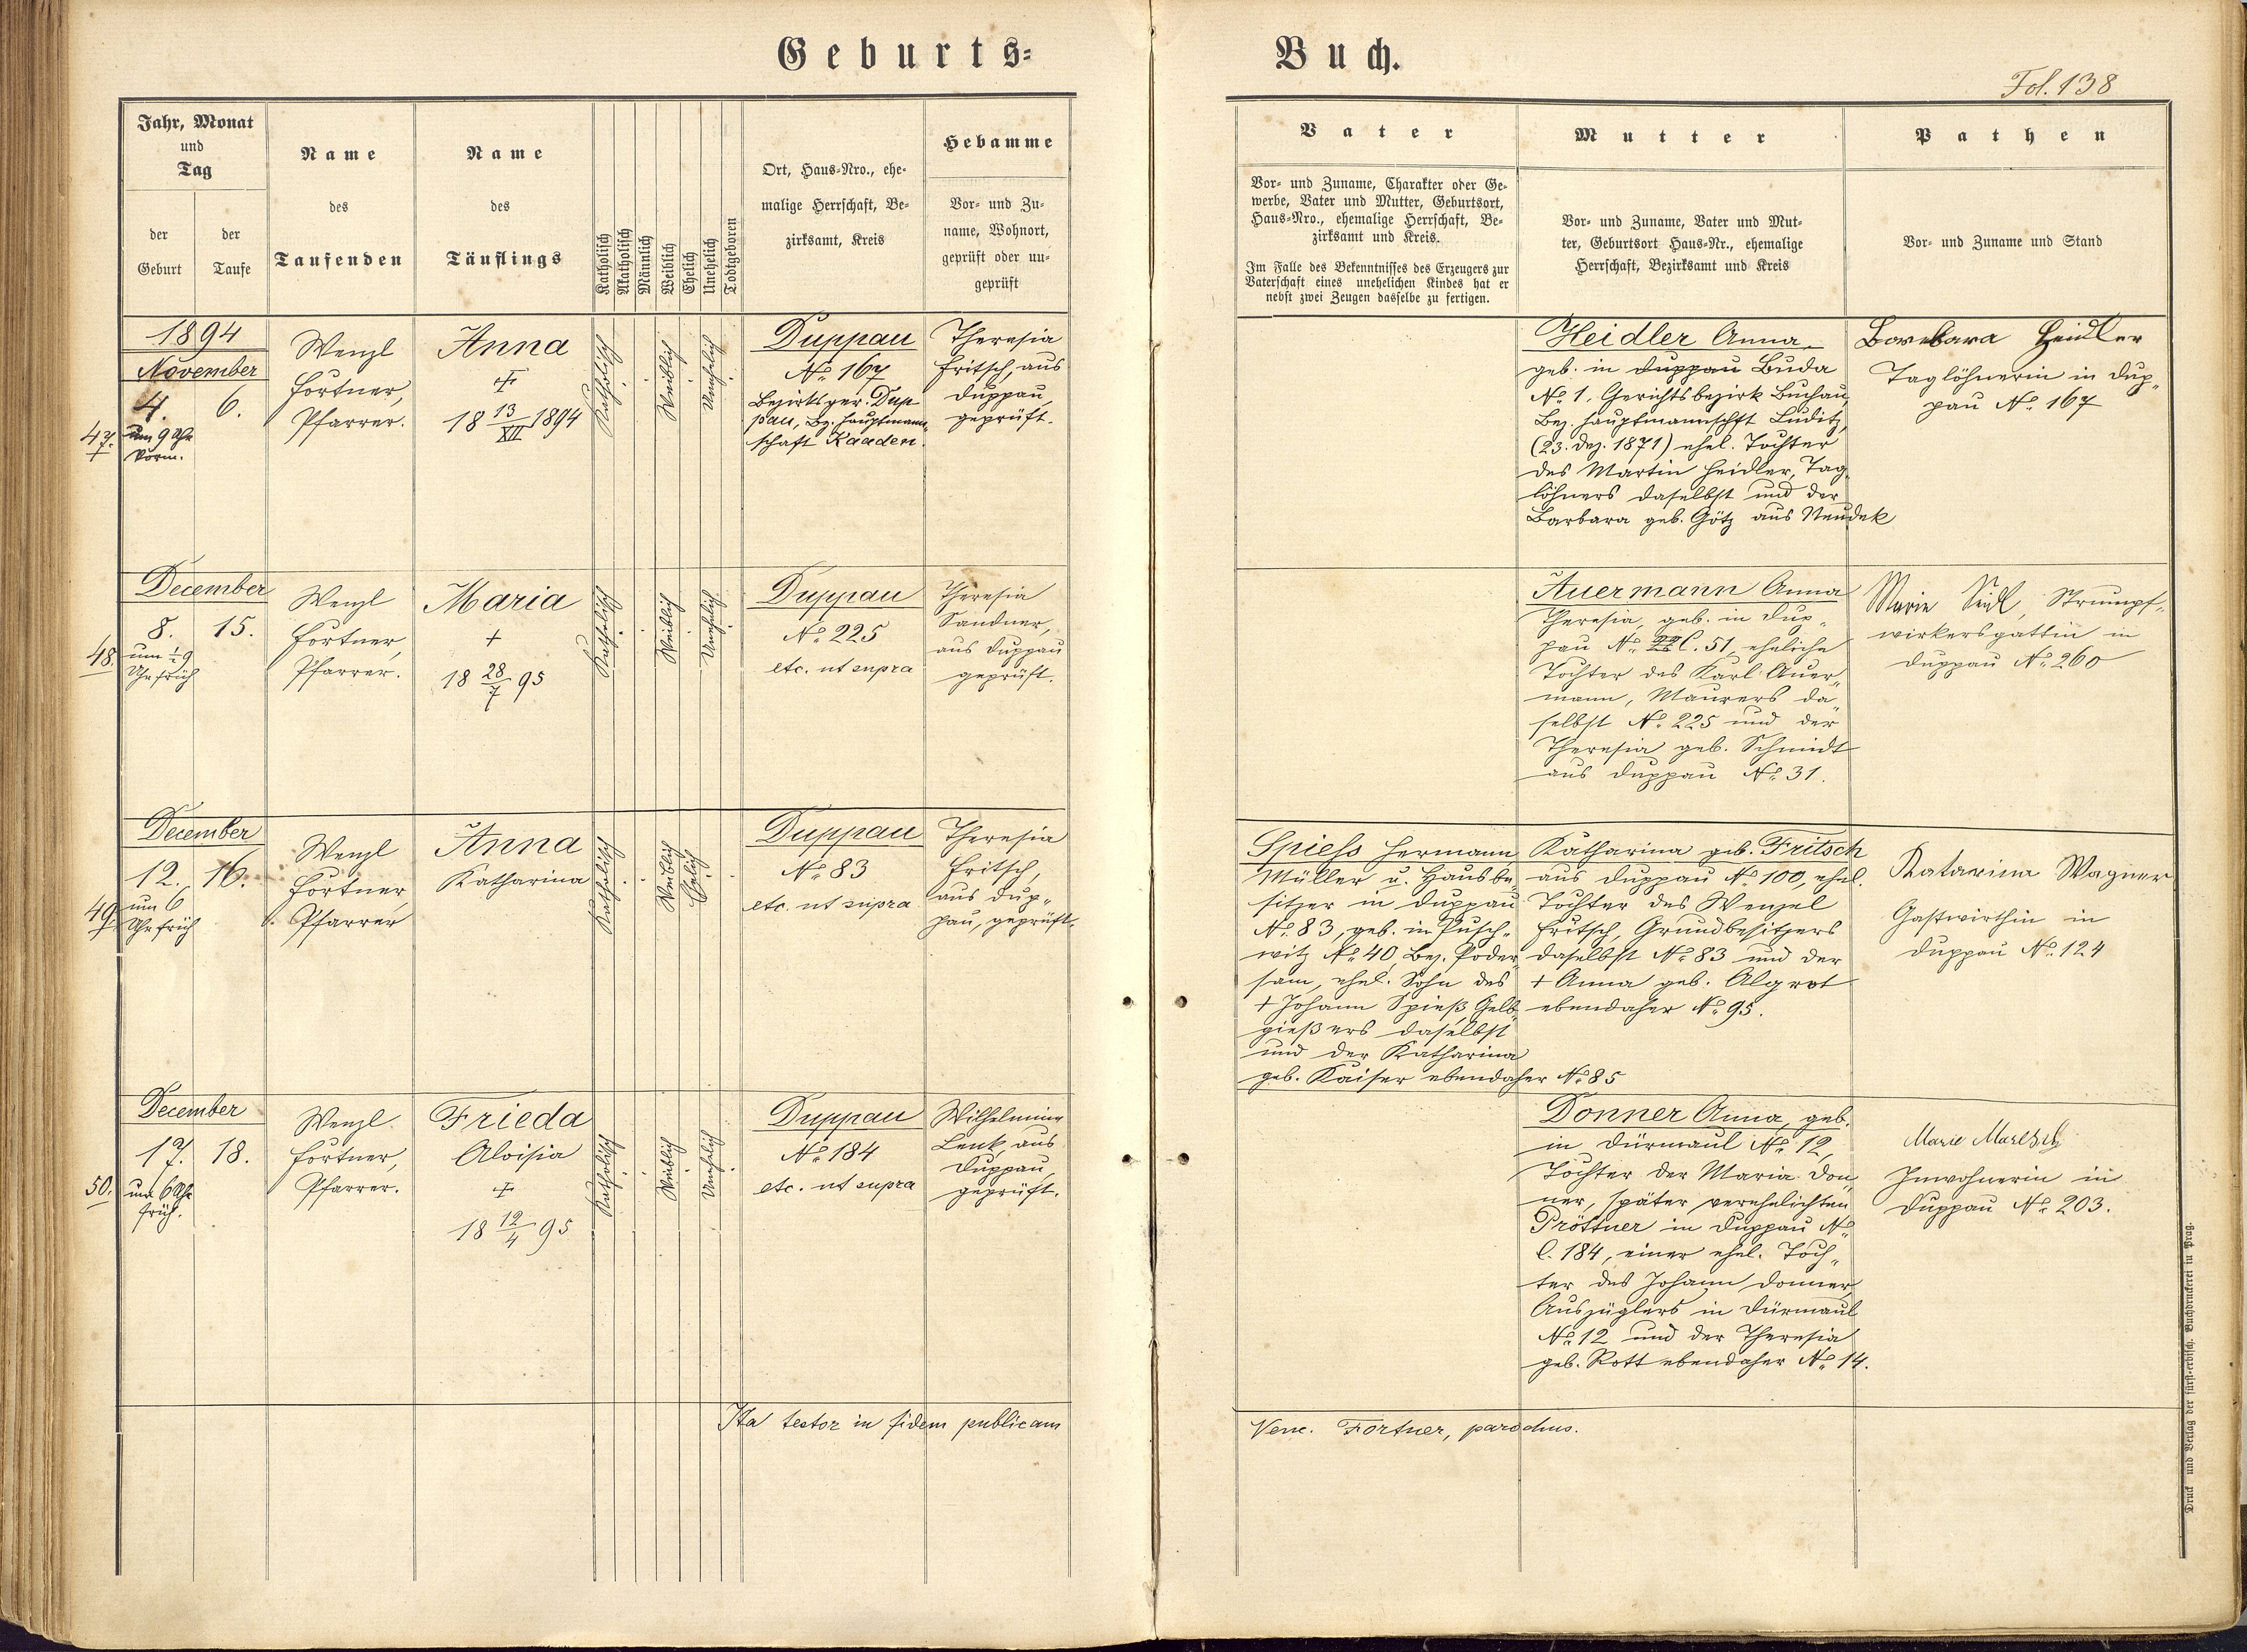 Geburts=
Buch.
Fol. 138
Jahr, Monat
und
Tag
der
Geburt
der
Taufe
Name
des
Taufenden
Name
des
Täuflings
Katholisch
Akatholisch
Männlich
Weiblich
Ehelich
Unehelich
Todtgeboren
Ort, Haus-Nro., ehe-
malige Herrschaft, Be-
zirksamt, Kreis
Hebamme
Vor- und Zu-
name, Wohnort,
geprüft oder un-
geprüft
Vater
Vor- und Zuname, Charakter oder Ge-
werbe, Vater und Mutter, Geburtsort,
Haus-Nro., ehemalige Herrschaft, Be-
zirksamt und Kreis.
Im Falle des Bekenntnisses des Erzeugers zur
Vaterschaft eines unehelichen Kindes hat er
nebst zwei Zeugen dasselbe zu fertigen.
Mutter
Vor- und Zuname, Vater und Mut-
ter, Geburtsort Haus-Nr., ehemalige
Herrschaft, Bezirksamt und Kreis
Pathen
Vor- und Zuname und Stand
47.
1894
November
4.
6.
um 9 Uhr
Vorm.
Wenzl
Fortner,
Pfarrer.
Anna
+
18 13/XII 1894
Katholisch
Weiblich
Unehelich
Duppau
No. 167
Bezirksger. Dup
pau, Bz. Hauptmann-
schaft Kaaden.
Theresia
Fritsch aus
Duppau,
geprüft.
Heidler Anna
geb. in Duppau Buda
No. 1, Gerichtsbezirk Buchau,
Bez. Hauptmannschft Luditz,
(23. Dez. 1871) ehel. Tochter
des Martin Heidler, Tag-
löhners daselbst und der
Barbara geb. Götz aus Neudek
Barbara Heidler
Taglöhnerin in Dup-
pau No. 167
48.
December
8.
15.
um ½ 9
Uhr früh
Wenzl
Fortner,
Pfarrer.
Maria
+
18 28/7 95
Katholisch
Weiblich
Unehelich
Duppau
No. 225
etc. ut supra
Theresia
Sandner,
aus Duppau
geprüft.
Auermann Anna
Theresia, geb. in Dup-
pau No. C. 51, eheliche
Tochter des Karl Auer-
mann, Maurers da-
selbst No. 225 und der
Theresia geb. Schmidt
aus Duppau No. 31.
Marie Seidl, Strumpf-
wirkersgattin in
Duppau No. 260
49.
December
12.
16.
um 6
Uhr früh
Wenzl
Fortner
Pfarrer
Anna
Katharina
Katholisch
Weiblich
Ehelich
Duppau
No. 83
etc. ut supra
Theresia
Fritsch,
aus Dup-
pau, geprüft.
Spiess Hermann
Müller u. Hausbe-
sitzer in Duppau
No. 83, geb. in Pusch-
witz No. 40, Bez. Poder-
sam, ehel. Sohn des
+ Johann Spieß, Gelb-
gießers daselbst
und der Katharina
geb. Kaiser ebendaher No. 85
Katharina geb. Fritsch
aus Duppau No. 100, ehel.
Tochter des Wenzel
Fritsch, Grundbesitzers
daselbst No. 83 und der
+ Anna geb. Algrot
ebendaher No. 95.
Katarina Wagner
Gastwirthin in
Duppau No. 124
50.
December
17.
18.
um 6 Uhr
früh.
Wenzl
Fortner,
Pfarrer.
Frieda
Aloisia
+
18 12/4 95
Katholisch
Weiblich
Unehelich
Duppau
No. 184
etc. ut supra
Wilhelmine
Lenk, aus
Duppau,
geprüft.
Donner Anna, geb.
in Dürmaul No. 12,
Tochter der Maria Don-
ner, später verehelichten
Pröttner in Duppau No.
C. 184, einer ehel. Toch-
ter des Johann Donner,
Auszüglers in Dürmaul
No. 12 und der Theresia
geb. Rott ebendaher No. 14.
Marie
Inwohnerin in
Duppau No. 203.
Ita testor in fidem publicam
Venc. Fortner, parochus.
Druck und Verlag der fürst-erzbisch. Buchdruckerei in Prag.